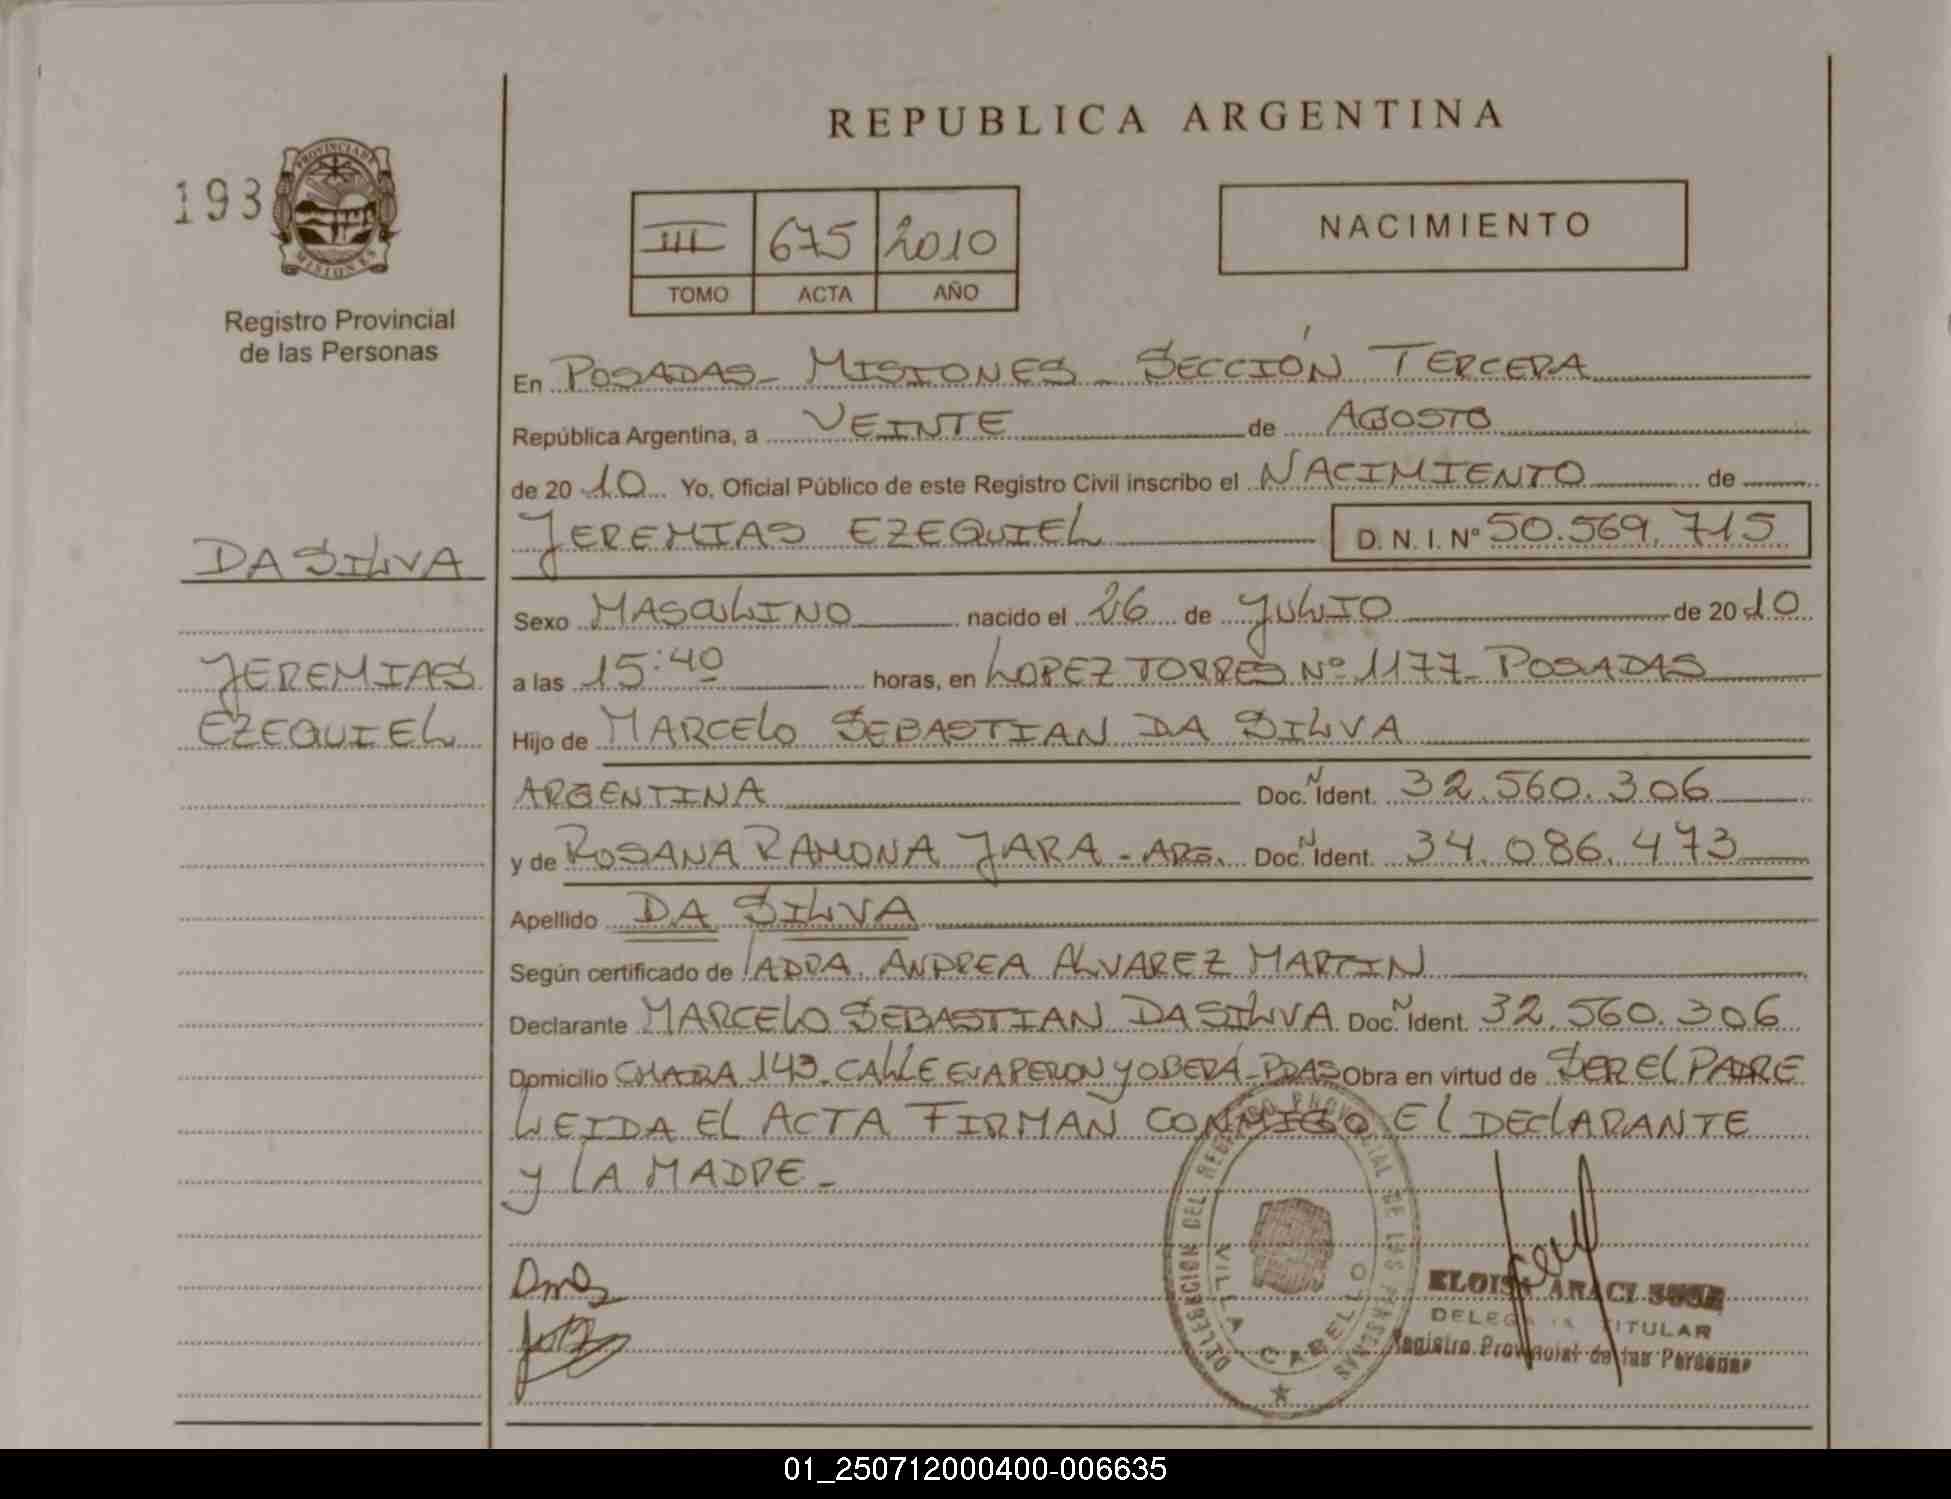 REPUBLICA ARGENTINA
193
PROVINCIA DE MISIONES
Registro Provincial
de las Personas
III 675 2010
TOMO ACTA AÑO
NACIMIENTO
En POSADAS - MISIONES - SECCIÓN TERCERA
República Argentina, a VEINTE de AGOSTO
de 2010 Yo, Oficial Público de este Registro Civil inscribo el NACIMIENTO de
JEREMIAS EZEQUIEL D.N.I. Nº 50.569.715
DA SILVA
JEREMIAS
EZEQUIEL
Sexo MASCULINO nacido el 26 de JULIO de 2010
a las 15:40 horas, en LOPEZ TORRES Nº 1177 - POSADAS
Hijo de MARCELO SEBASTIAN DA SILVA
ARGENTINA Doc. N Ident. 32.560.306
y de ROSANA RAMONA JARA - ARG. Doc. N Ident. 34.086.473
Apellido DA SILVA
Según certificado de ANDREA ALVAREZ MARTIN
Declarante MARCELO SEBASTIAN DA SILVA Doc. N Ident. 32.560.306
Domicilio CHACRA 143 - CALLE EVA PERON Y OBERÁ - PDAS Obra en virtud de SER EL PADRE
LEIDA EL ACTA FIRMAN CONMIGO EL DECLARANTE
Y LA MADRE -
DELEGACION DEL REGISTRO PROVINCIAL DE LAS PERSONAS
VILLA CABELLO
ELOISA ARACI
DELEGADA TITULAR
Registro Provincial de las Personas
01_250712000400-006635